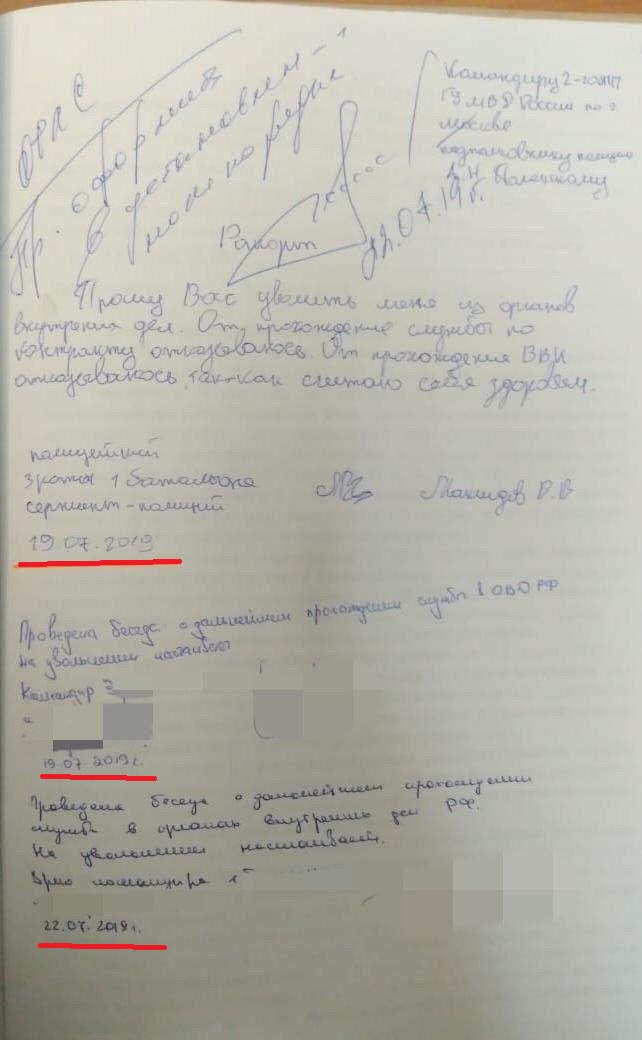 ОРЛС
Пр. оформить
в установлен-
ном порядке
Командиру 2-го
ГУ МВД России по г.
Москве
подполковнику полиции
22.07.19г.
Рапорт
Прошу Вас уволить меня из органов
внутрених дел. От прохождение службы по
контракту отказываюсь. От прохождения ВВК
отказываюсь, так-как считаю себя здоровым.
полицейский
3 роты 1 батальона
сержант-полиции
Макидов В.В
19.07.2019
Проведена беседа о дальнейшем прохождении службы в ОВД РФ
На увольнении настаивает
Командир 3
19.07.2019г.
Проведена беседа о дальнейшем прохождении
службы в органах внутренних дел РФ.
На увольнении настаивает.
Врио командира 1
22.07.2019г.